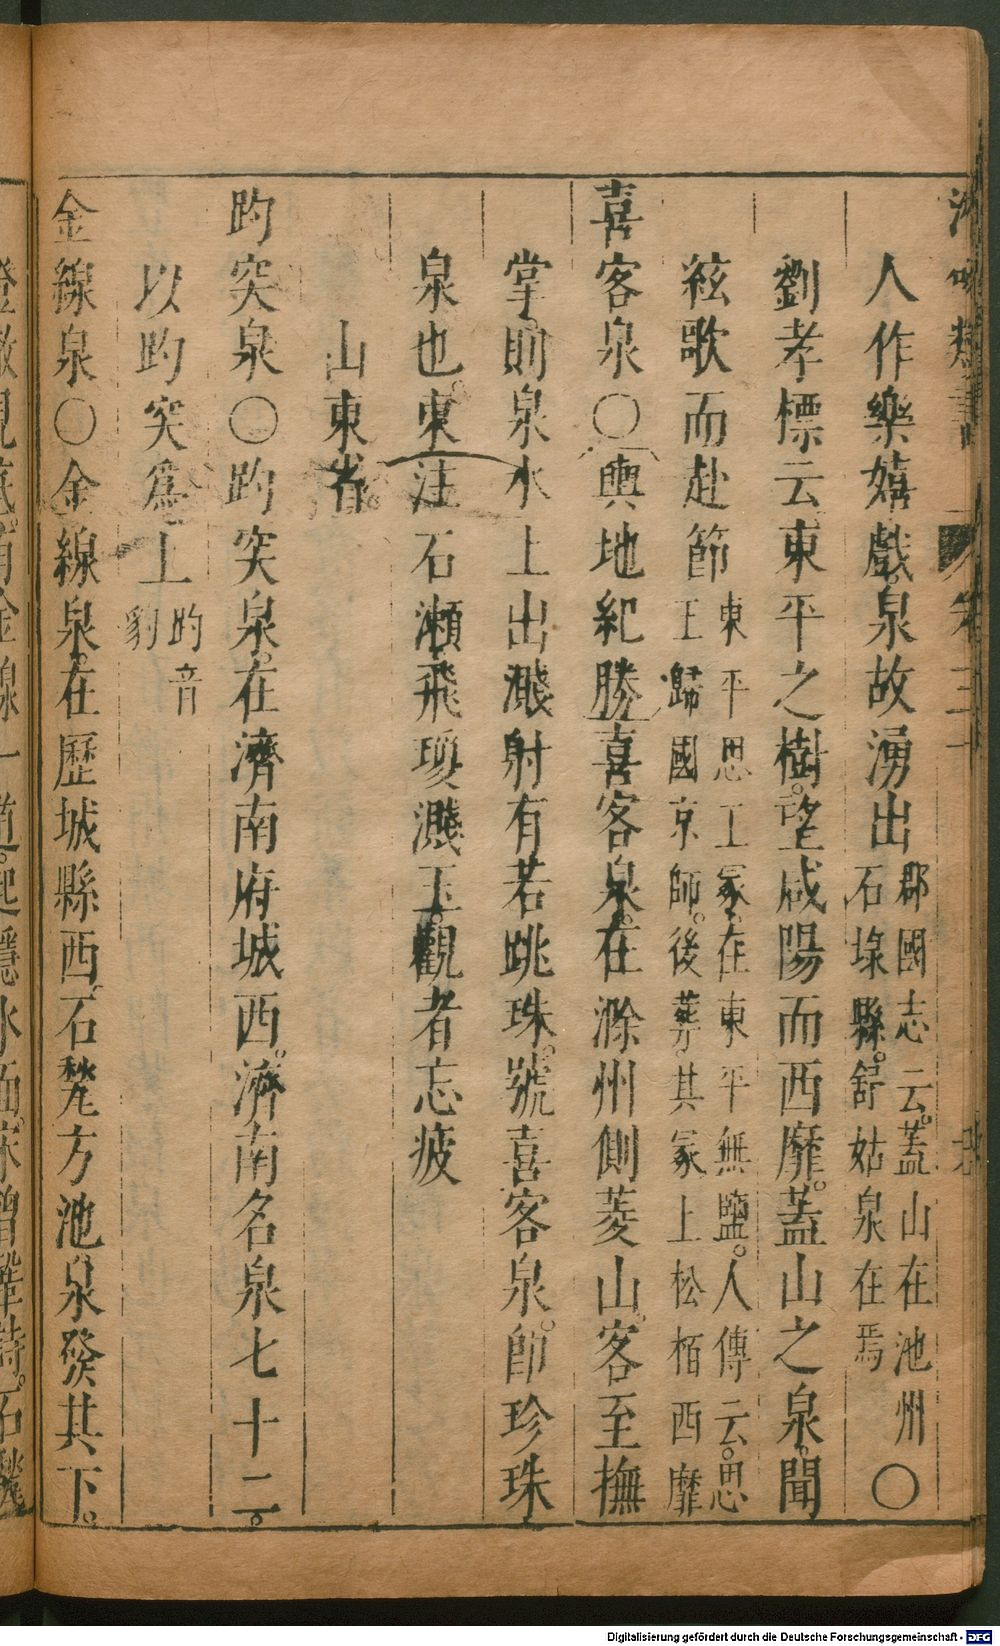 人作樂嬉戲泉故湧出郡國志云。蓋山在池州石埭縣。舒姑泉在焉〇
劉孝標云東平之樹。望咸陽而西靡。蓋山之泉。聞
絃歌而赴節東平思王冢。在東平無鹽。人傳云。思王歸國京師。後葬。其冢上松栢西靡
喜客泉〇輿地紀勝喜客泉。在滁州側菱山。客至撫
掌。則泉水上出濺射有若跳珠。號喜客泉。卽珍珠
泉也。東注石瀨飛瓊濺玉。觀者忘疲
山東省。
趵突泉〇趵突泉。在濟南府城西。濟南名泉七十二。
以趵突爲上趵音豹
金線泉〇金線泉。在歷城縣西。石甃方池。泉發其下。
Digitalisierung gefördert durch die Deutsche Forschungsgemeinschaft - DFG